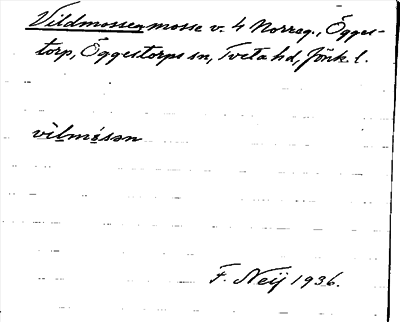 Vildmossen mosse v. 4 Norreg., Ögges-
torp, Öggestorps sn, Tveta hd, Jönk. l.
vìlmósən
F. Neij 1936.